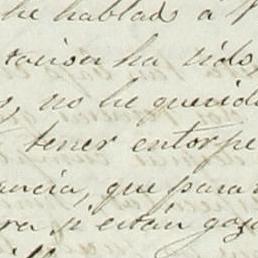 he hablado a
ha sido
no he querido
tener entorpe
ancia, que para
ra q.e están goza